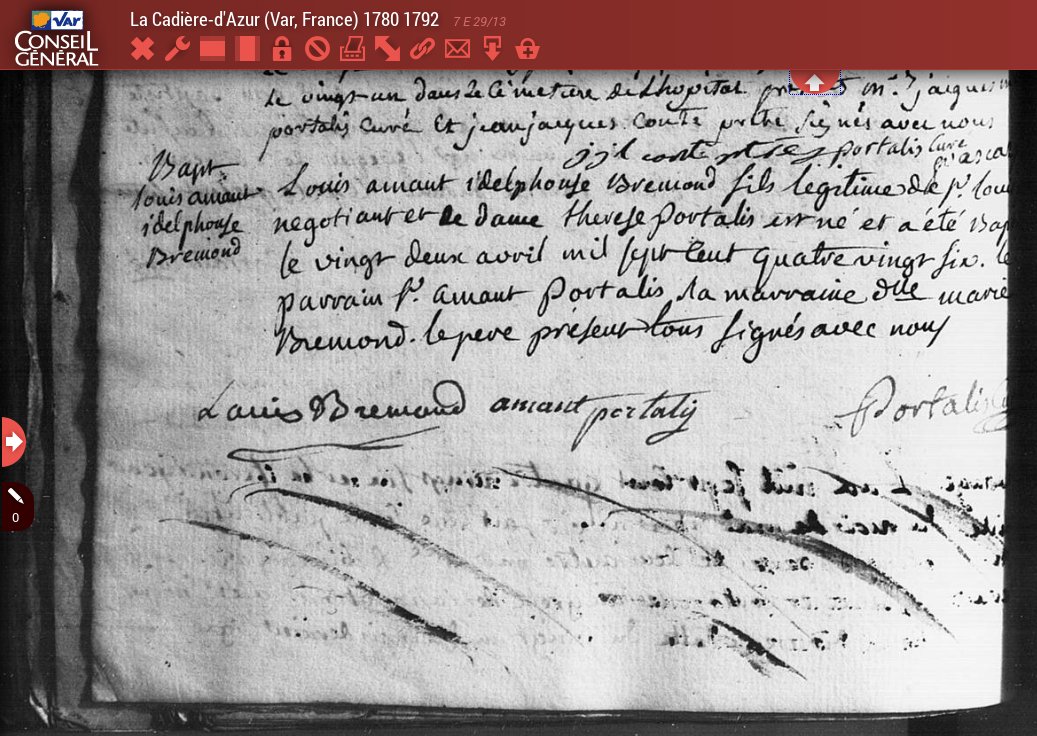 Var
CONSEIL
GÉNÉRAL
La Cadière-d'Azur (Var, France) 1780 1792 7 E 29/13
le vingt un dans le cimetiere de l'hopital mr. jaques
portalis curé et jean jacques conte prêtre signés avec nous
j j l conte ptre portalis curé
Bapt
louis amant
idelphonse
Bremond
Louis amant idelphonse Bremond fils legitime de Sr. louis
negotiant et de dame therese Portalis est né et a été Bap
le vingt deux avril mil sept cent quatre vingt six. le
parrain Sr. amant Portalis, la marraine dlle marie
Bremond. le pere présent tous signés avec nous
Louis Bremond amant portalis Portalis
0